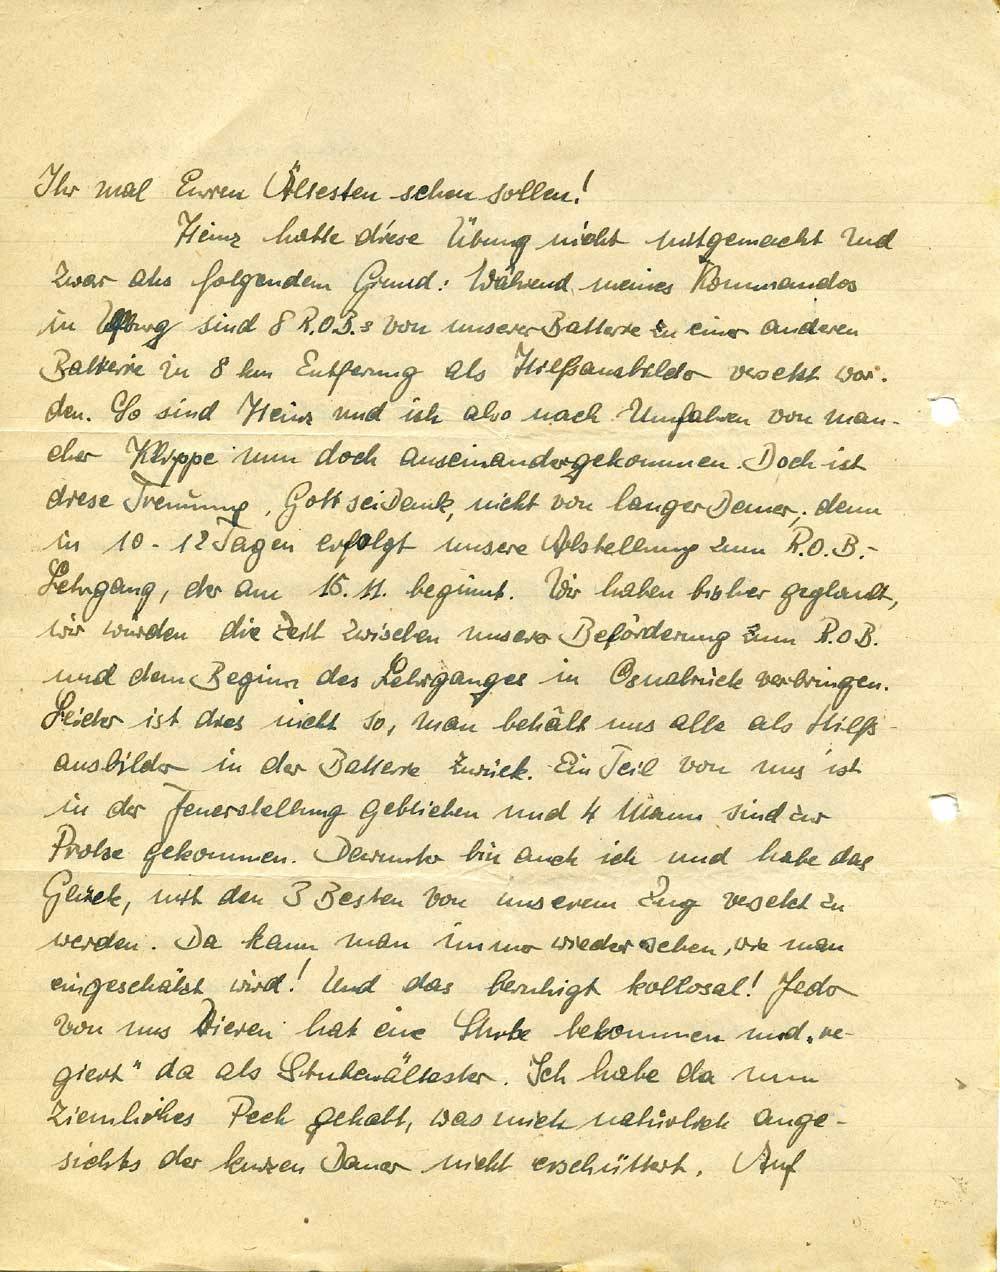 Ihr mal Euren Ältesten sehen sollen!
Heinz hatte diese Übung nicht mitgemacht und
zwar aus folgendem Grund: Während meines Kommandos
in sind 8 R.O.B.s von unserer Batterie zu einer anderen
Batterie in 8 km Entferung als Hilfsausbilder vesetzt wor-
den. So sind Heinz und ich also nach Umfahren von man-
cher Klippe nun doch auseinandergekommen. Doch ist
diese Trennung, Gott sei Dank, nicht von langer Dauer, denn
in 10-12 Tagen erfolgt unsere Abstellung zum R.O.B.-
Lehrgang, der am 15.11. beginnt. Wir haben bisher geglaubt,
wir würden die Zeit zwischen unserer Beförderung zum R.O.B.
und dem Beginn des Lehrganges in Osnabrück verbringen.
Leider ist dies nicht so, man behält uns alle als Hilfs-
ausbilder in der Batterie zurück. Ein Teil von uns ist
in der Feuerstellung geblieben und 4 Mann sind zur
Protze gekommen. Darunter bin auch ich und habe das
Glück, mit den 3 Besten von unserem Zug vesetzt zu
werden. Da kann man immer wieder sehen, wie man
eingeschätzt wird! Und das beruhigt kollosal! Jeder
von uns Vieren hat eine Stube bekommen und „re-
giert" da als Stubenältester. Ich habe da nun
ziemliches Pech gehabt, was mich natürlich ange-
sichts der kurzen Dauer nicht erschüttert. Auf